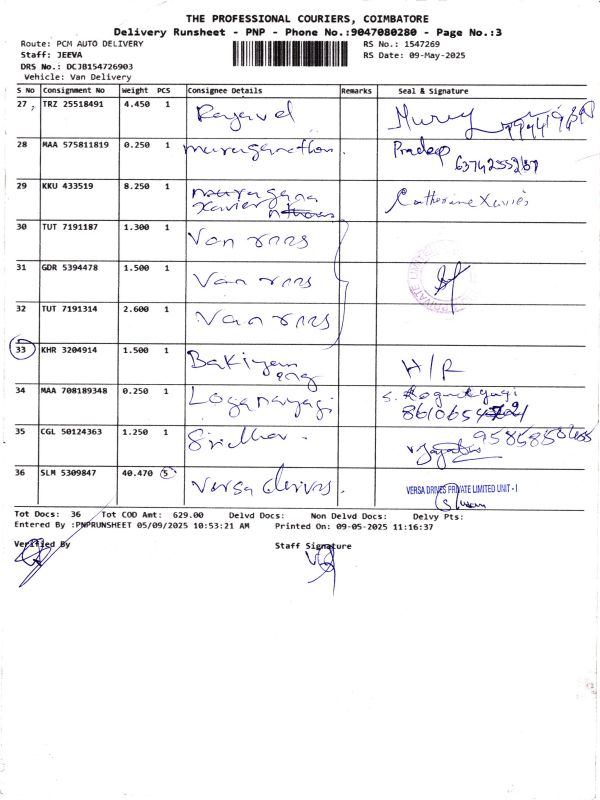 THE PROFESSIONAL COURIERS, COIMBATORE
Delivery Runsheet - PNP - Phone No.:9047080280 - Page No.:3
Route: PCM AUTO DELIVERY RS No.: 1547269
Staff: JEEVA RS Date: 09-May-2025
DRS No.: DCJB154726903
Vehicle: Van Delivery
S No Consignment No Weight PCS Consignee Details Remarks Seal & Signature
27, TRZ 25518491 4.450 1 Rajavel
28 MAA 575811819 0.250 1 muruganathan. Pradeep
29 KKU 433519 8.250 1 Xavier Catherine Xavier
30 TUT 7191187 1.300 1 Van
31 GDR 5394478 1.500 1 Van
32 TUT 7191314 2.600 1 Van
33 KHR 3204914 1.500 1 Bakiyam eng H/R
34 MAA 708189348 0.250 1 Loganayagi
35 CGL 50124363 1.250 1 Sridhar.
36 SLM 5309847 40.470 5 Versa drives. VERSA DRIVES PRIVATE LIMITED UNIT - I
Tot Docs: 36 Tot COD Amt: 629.00 Delvd Docs: Non Delvd Docs: Delvy Pts:
Entered By :PNPRUNSHEET 05/09/2025 10:53:21 AM Printed On: 09-05-2025 11:16:37
Verified By Staff Signature